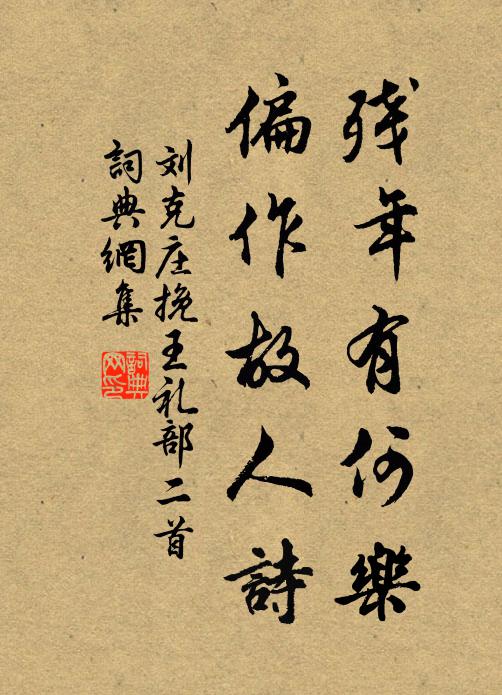 残年有何樂
偏作故人詩
刘克庄挽王礼部二首
詞典網集
詞典网印